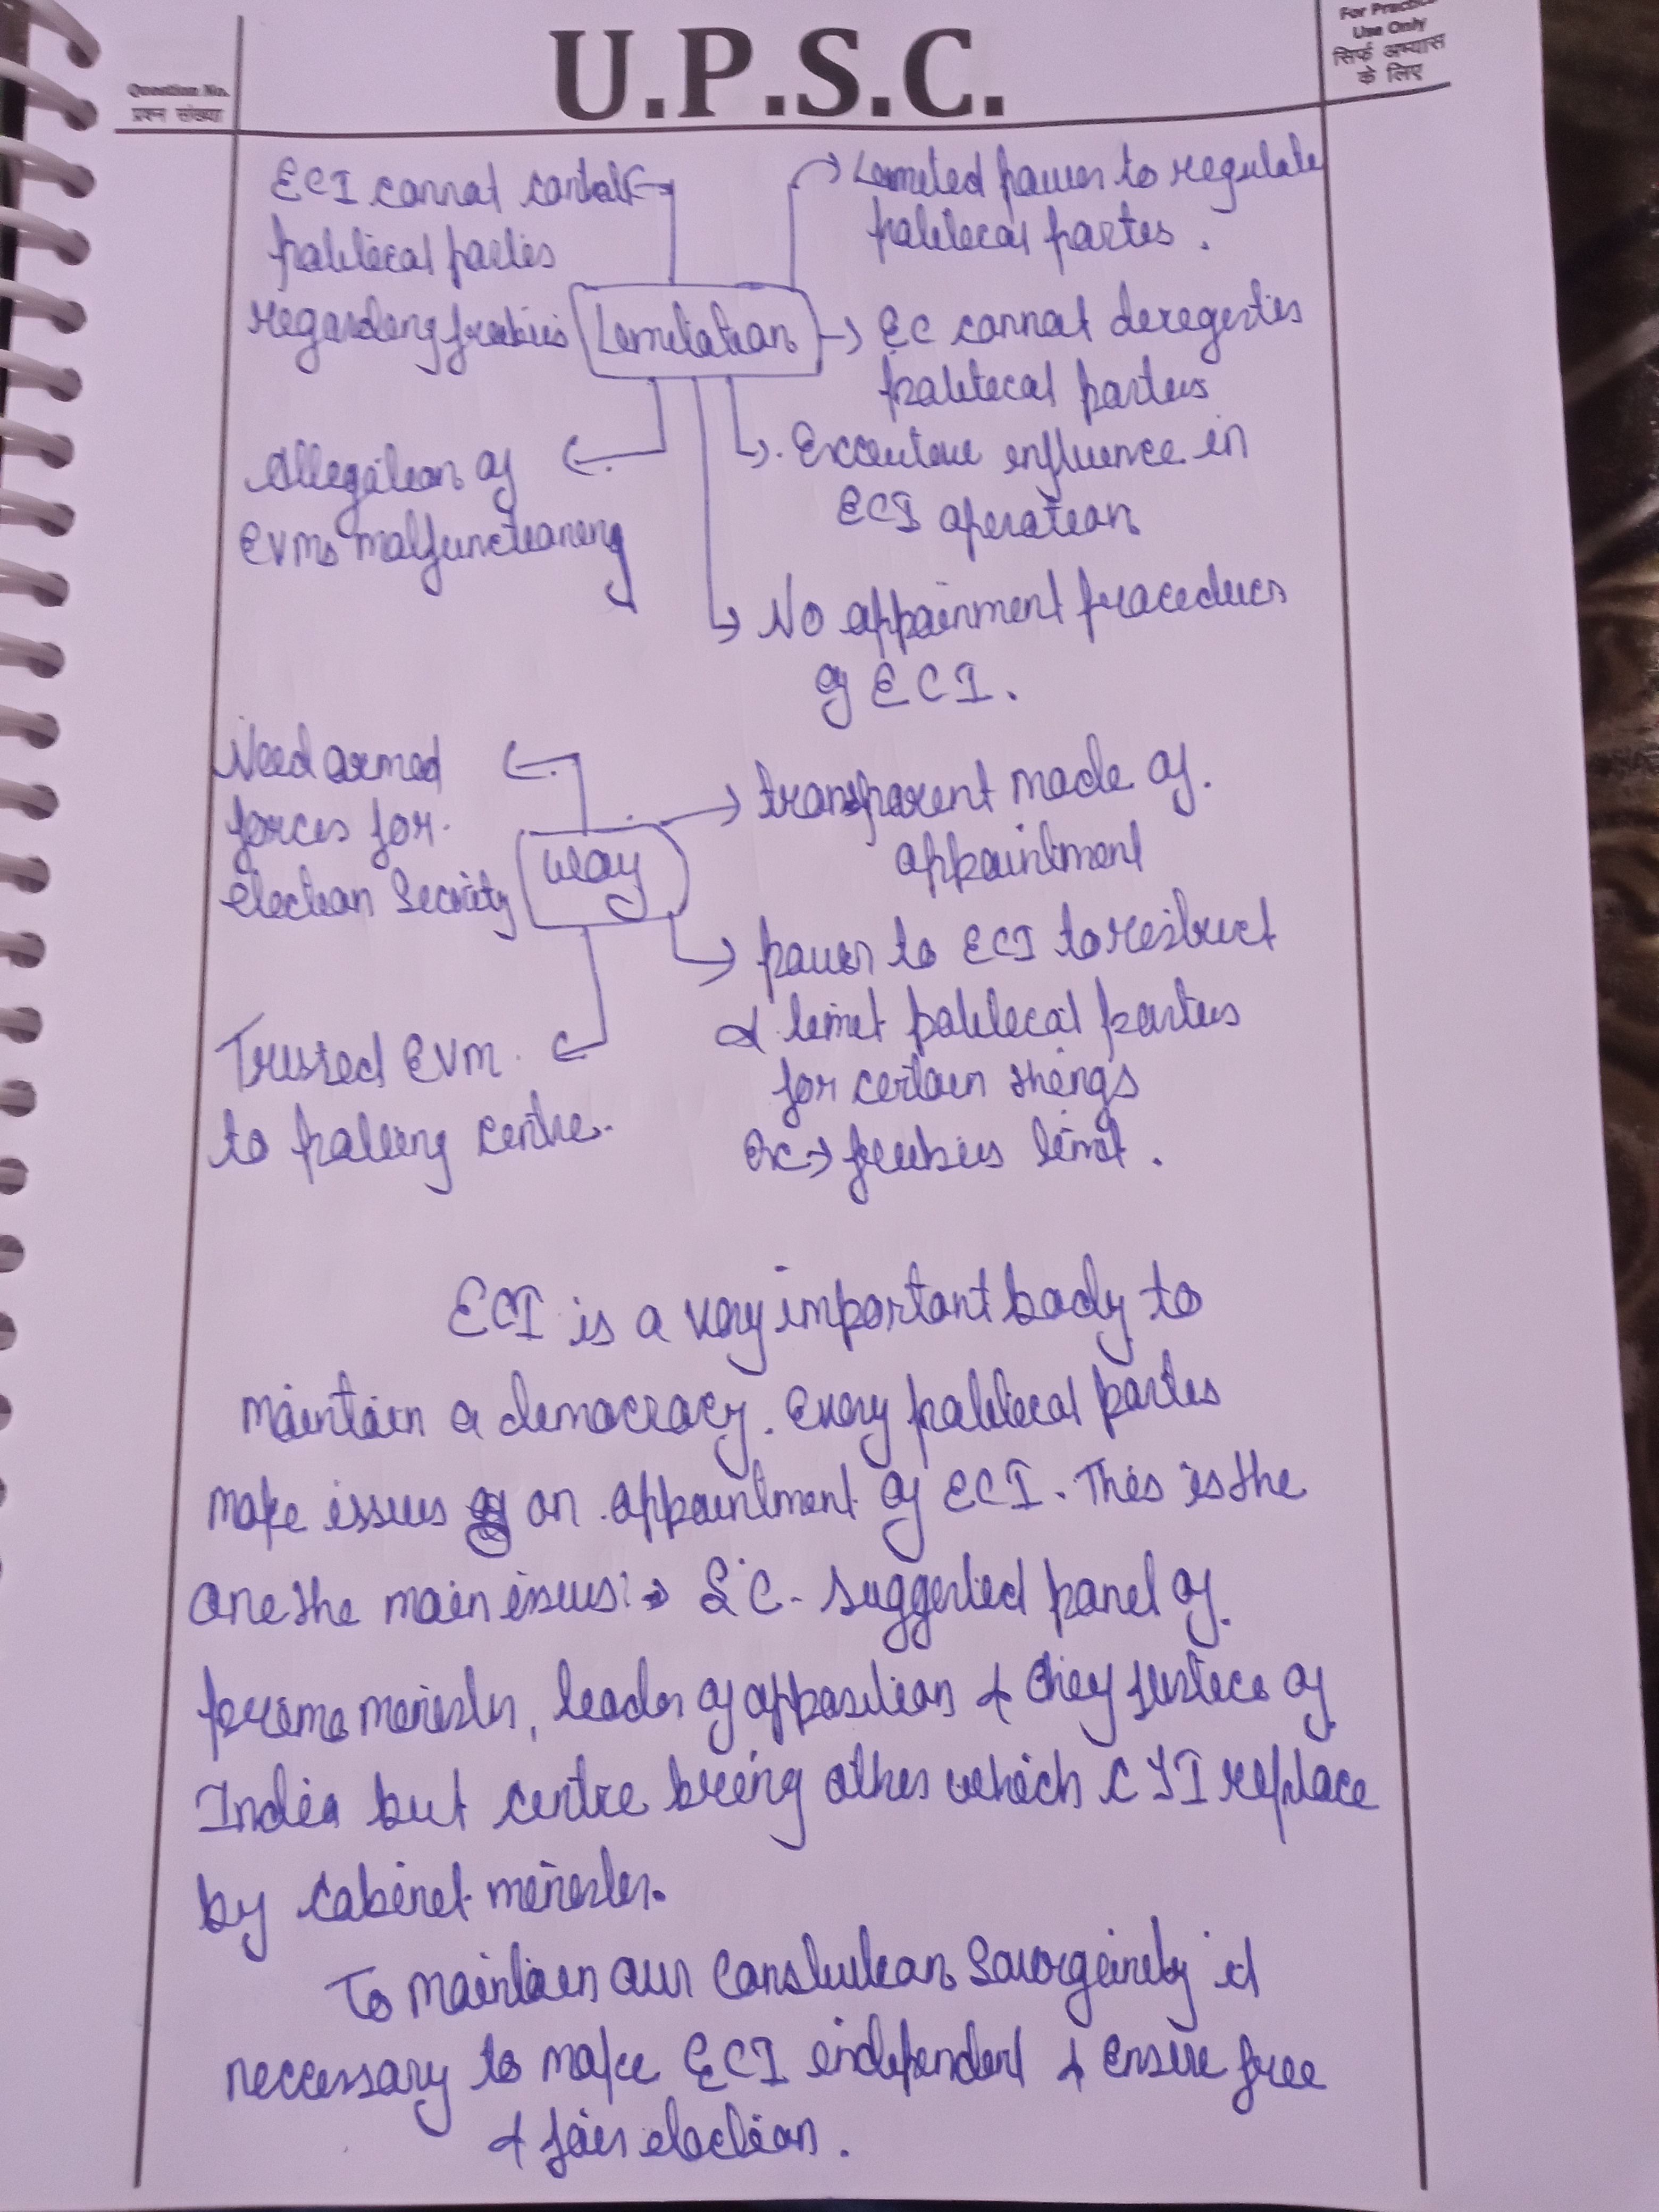 Question No.
प्रश्न संख्या
U.P.S.C.
For Practice
Use Only
सिर्फ अभ्यास
के लिए
ECI cannot control
political parties
regarding freebies
Limitation
Limited power to regulate
political parties.
EC cannot deregisties
political parties
Executive influence in
ECI operation
Allegation of
EVMs malfunctioning
No appoinment procedures
of ECI.
Need armed
forces for
election Security
way
transparent mode of
appointment
power to ECI to restrict
& limit political parties
for certain things
Ex → freebies limit.
Trusted EVM
to polling centre.
ECI is a very important body to
maintain a democracy. Every political parties
make issues on appointment of ECI. This is the
one the main issues:→ SC suggested panel of
prime minister, leader of opposition & chief justice of
India but centre bring other which CJI replace
by cabinet minister.
To maintain our it
neccessary to make ECI independent & ensure free
& fair election.